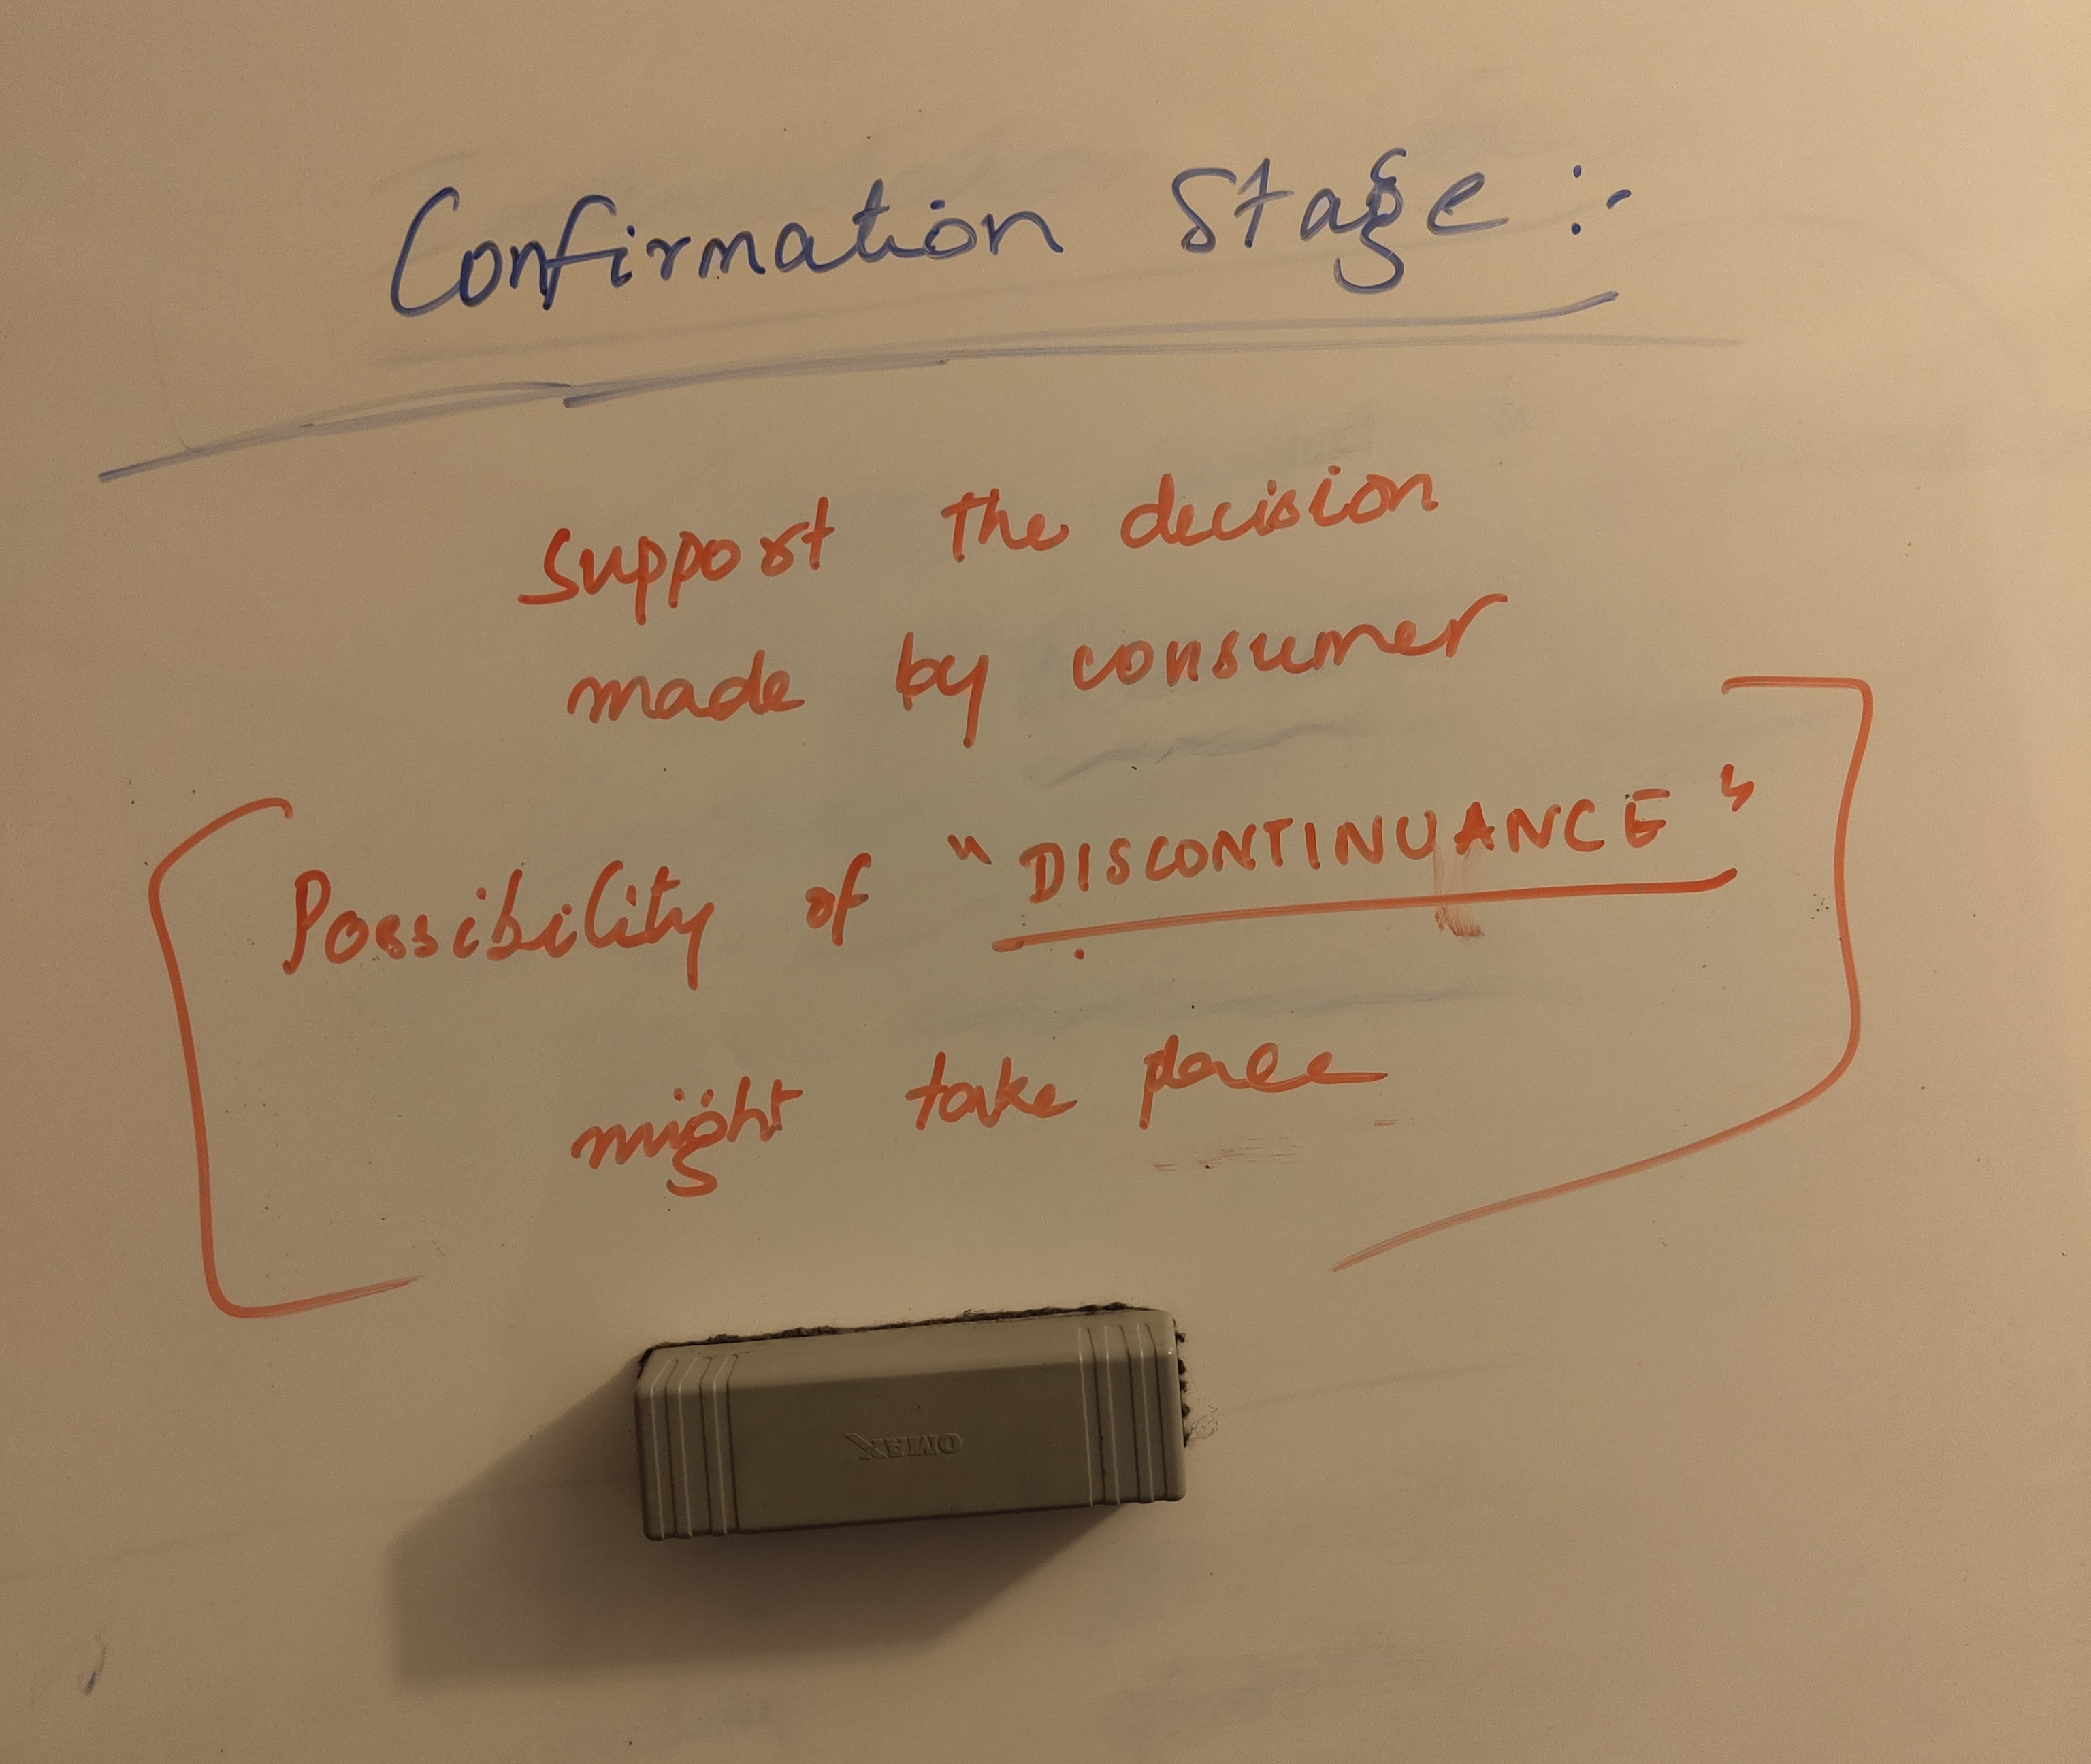 Confirmation Stage :-
Support the decision
made by consumer
Possibility of "DISCONTINUANCE"
might take place
OMAX